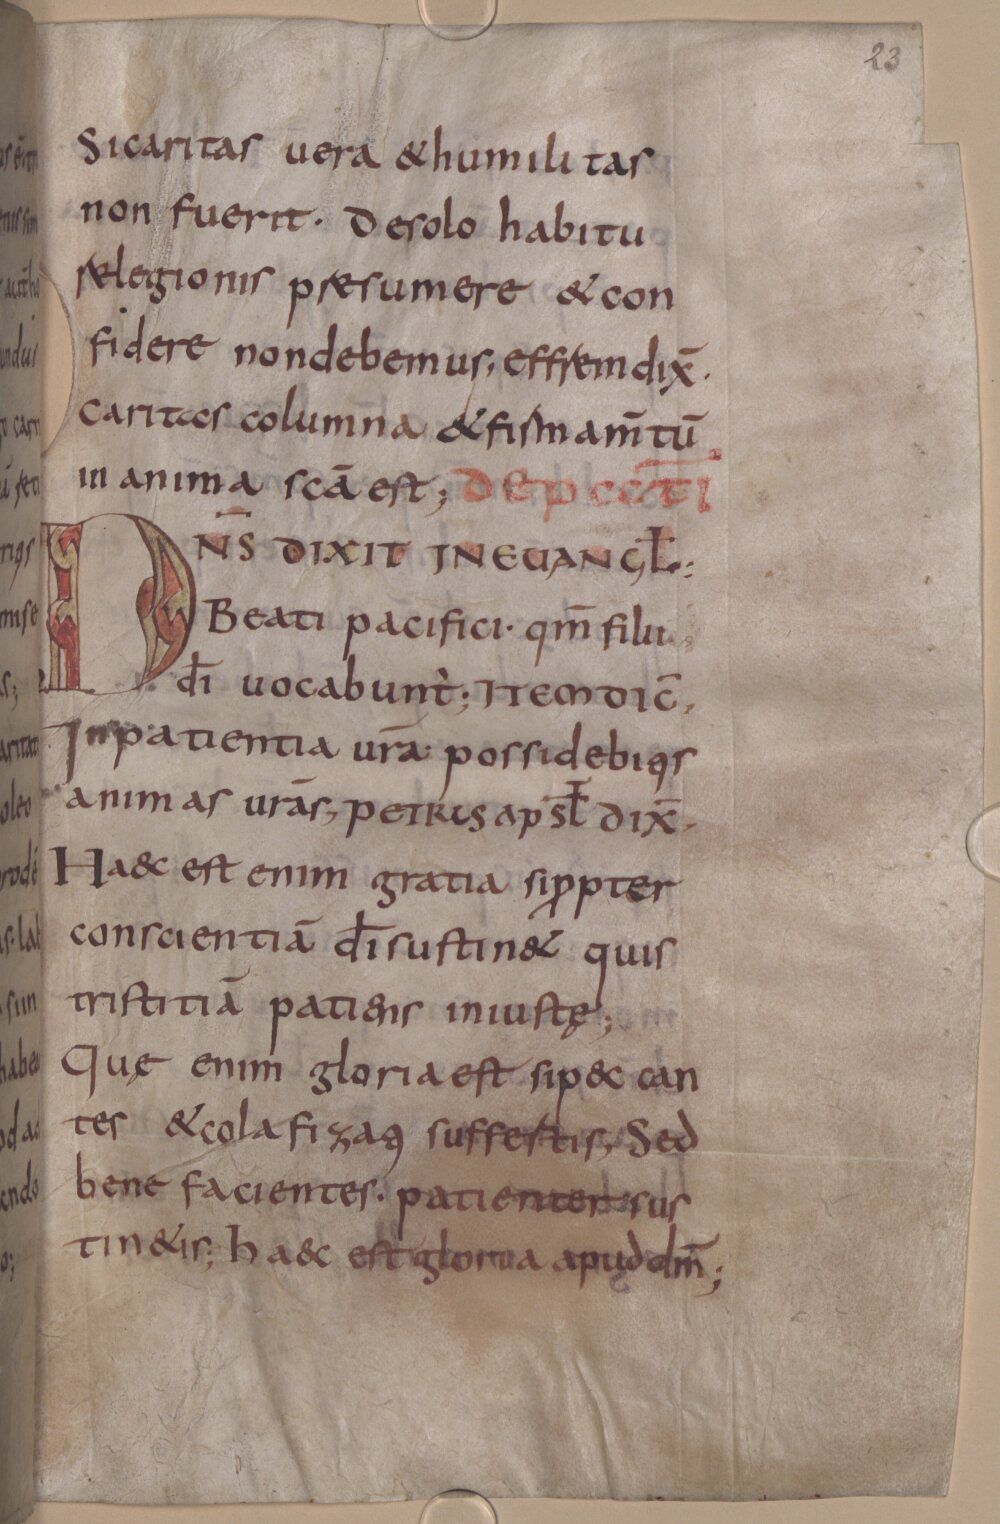 23
Si caritas uera & humilitas
non fuerit. De solo habitu
relegionis presumere & con
fidere non debemus, effrem dix̄.
caritas columna & firmam̄tū
in anima scā est;
DN̄S DIXIT IN EUANGL̄:
Beati pacifici. qm̄ filii
dī uocabunt̄; ITEM DIC̄,
In patientia urā possidebiqs
animas urās, PETRUS apsl̄ dix̄.
Haec est enim gratia si ꝓpter
conscientiā dī sustin& quis
tristitiā patiens iniustę;
Quę enim gloria est si pec can
tes & colafizaꝗ suffertis, Sed
bene facientes. patienter sus
tin&is; haec est gloria apud dm̄;